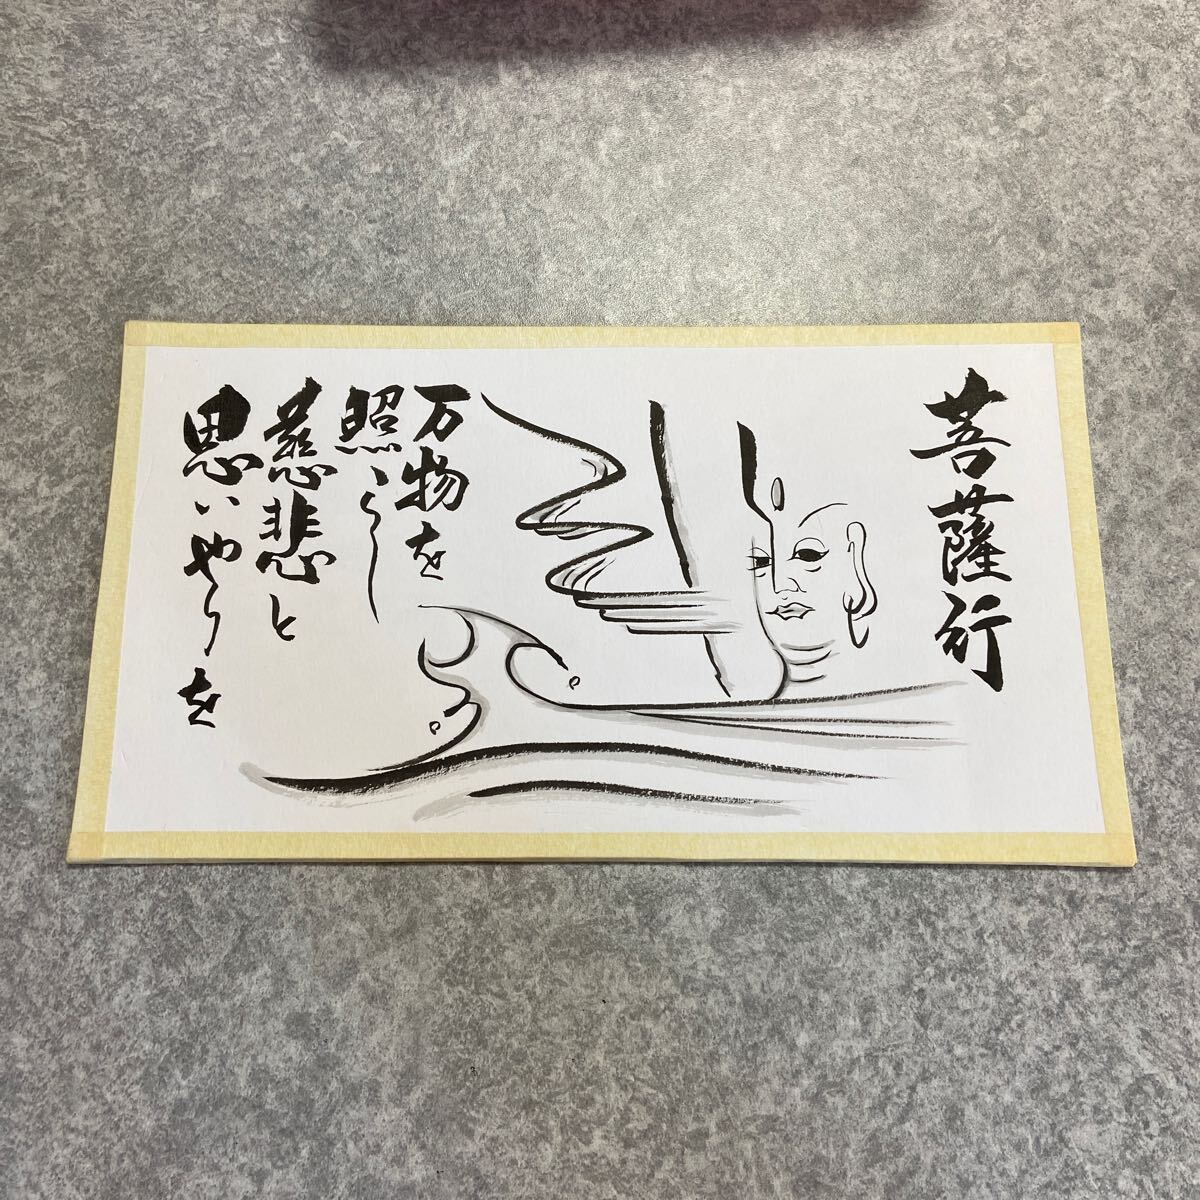 菩薩行
万物を
照らし
慈悲と
思いやりを